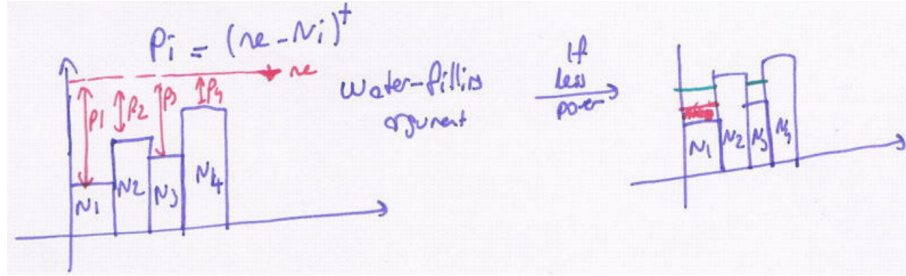 Pi = (ne - Ni)⁺
ne
P1 P2 P3 P4
N1 N2 N3 N4
Water-filling
argument
If
less
power
N1 N2 N3 N4